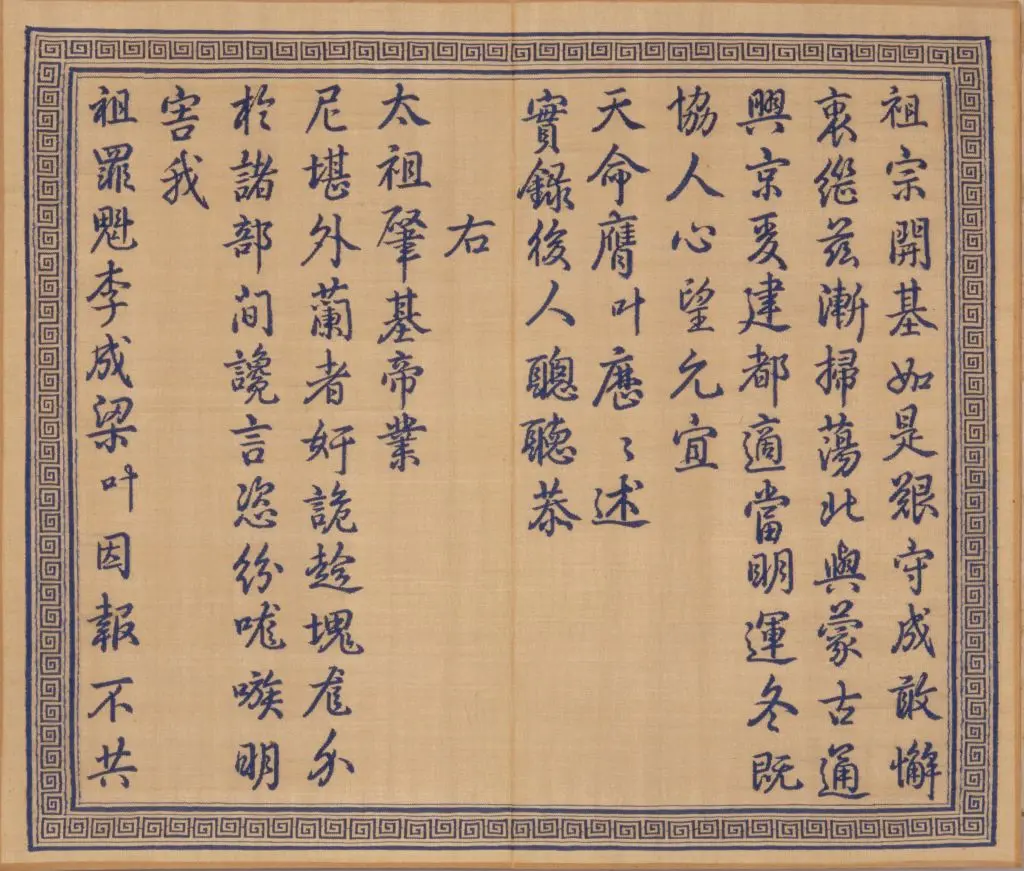 祖宗開基如是艱守成敢懈
衷繼茲漸掃蕩北與蒙古通
興京爰建都適當明運冬既
協人心望允宜
天命膺叶應〻述
實錄後人聰聽恭
右
太祖肇基帝業
尼堪外蘭者奸詭趁塊尨
於諸部間讒言恣紛哤嗾明
害我
祖罪魁李成梁叶因報不共